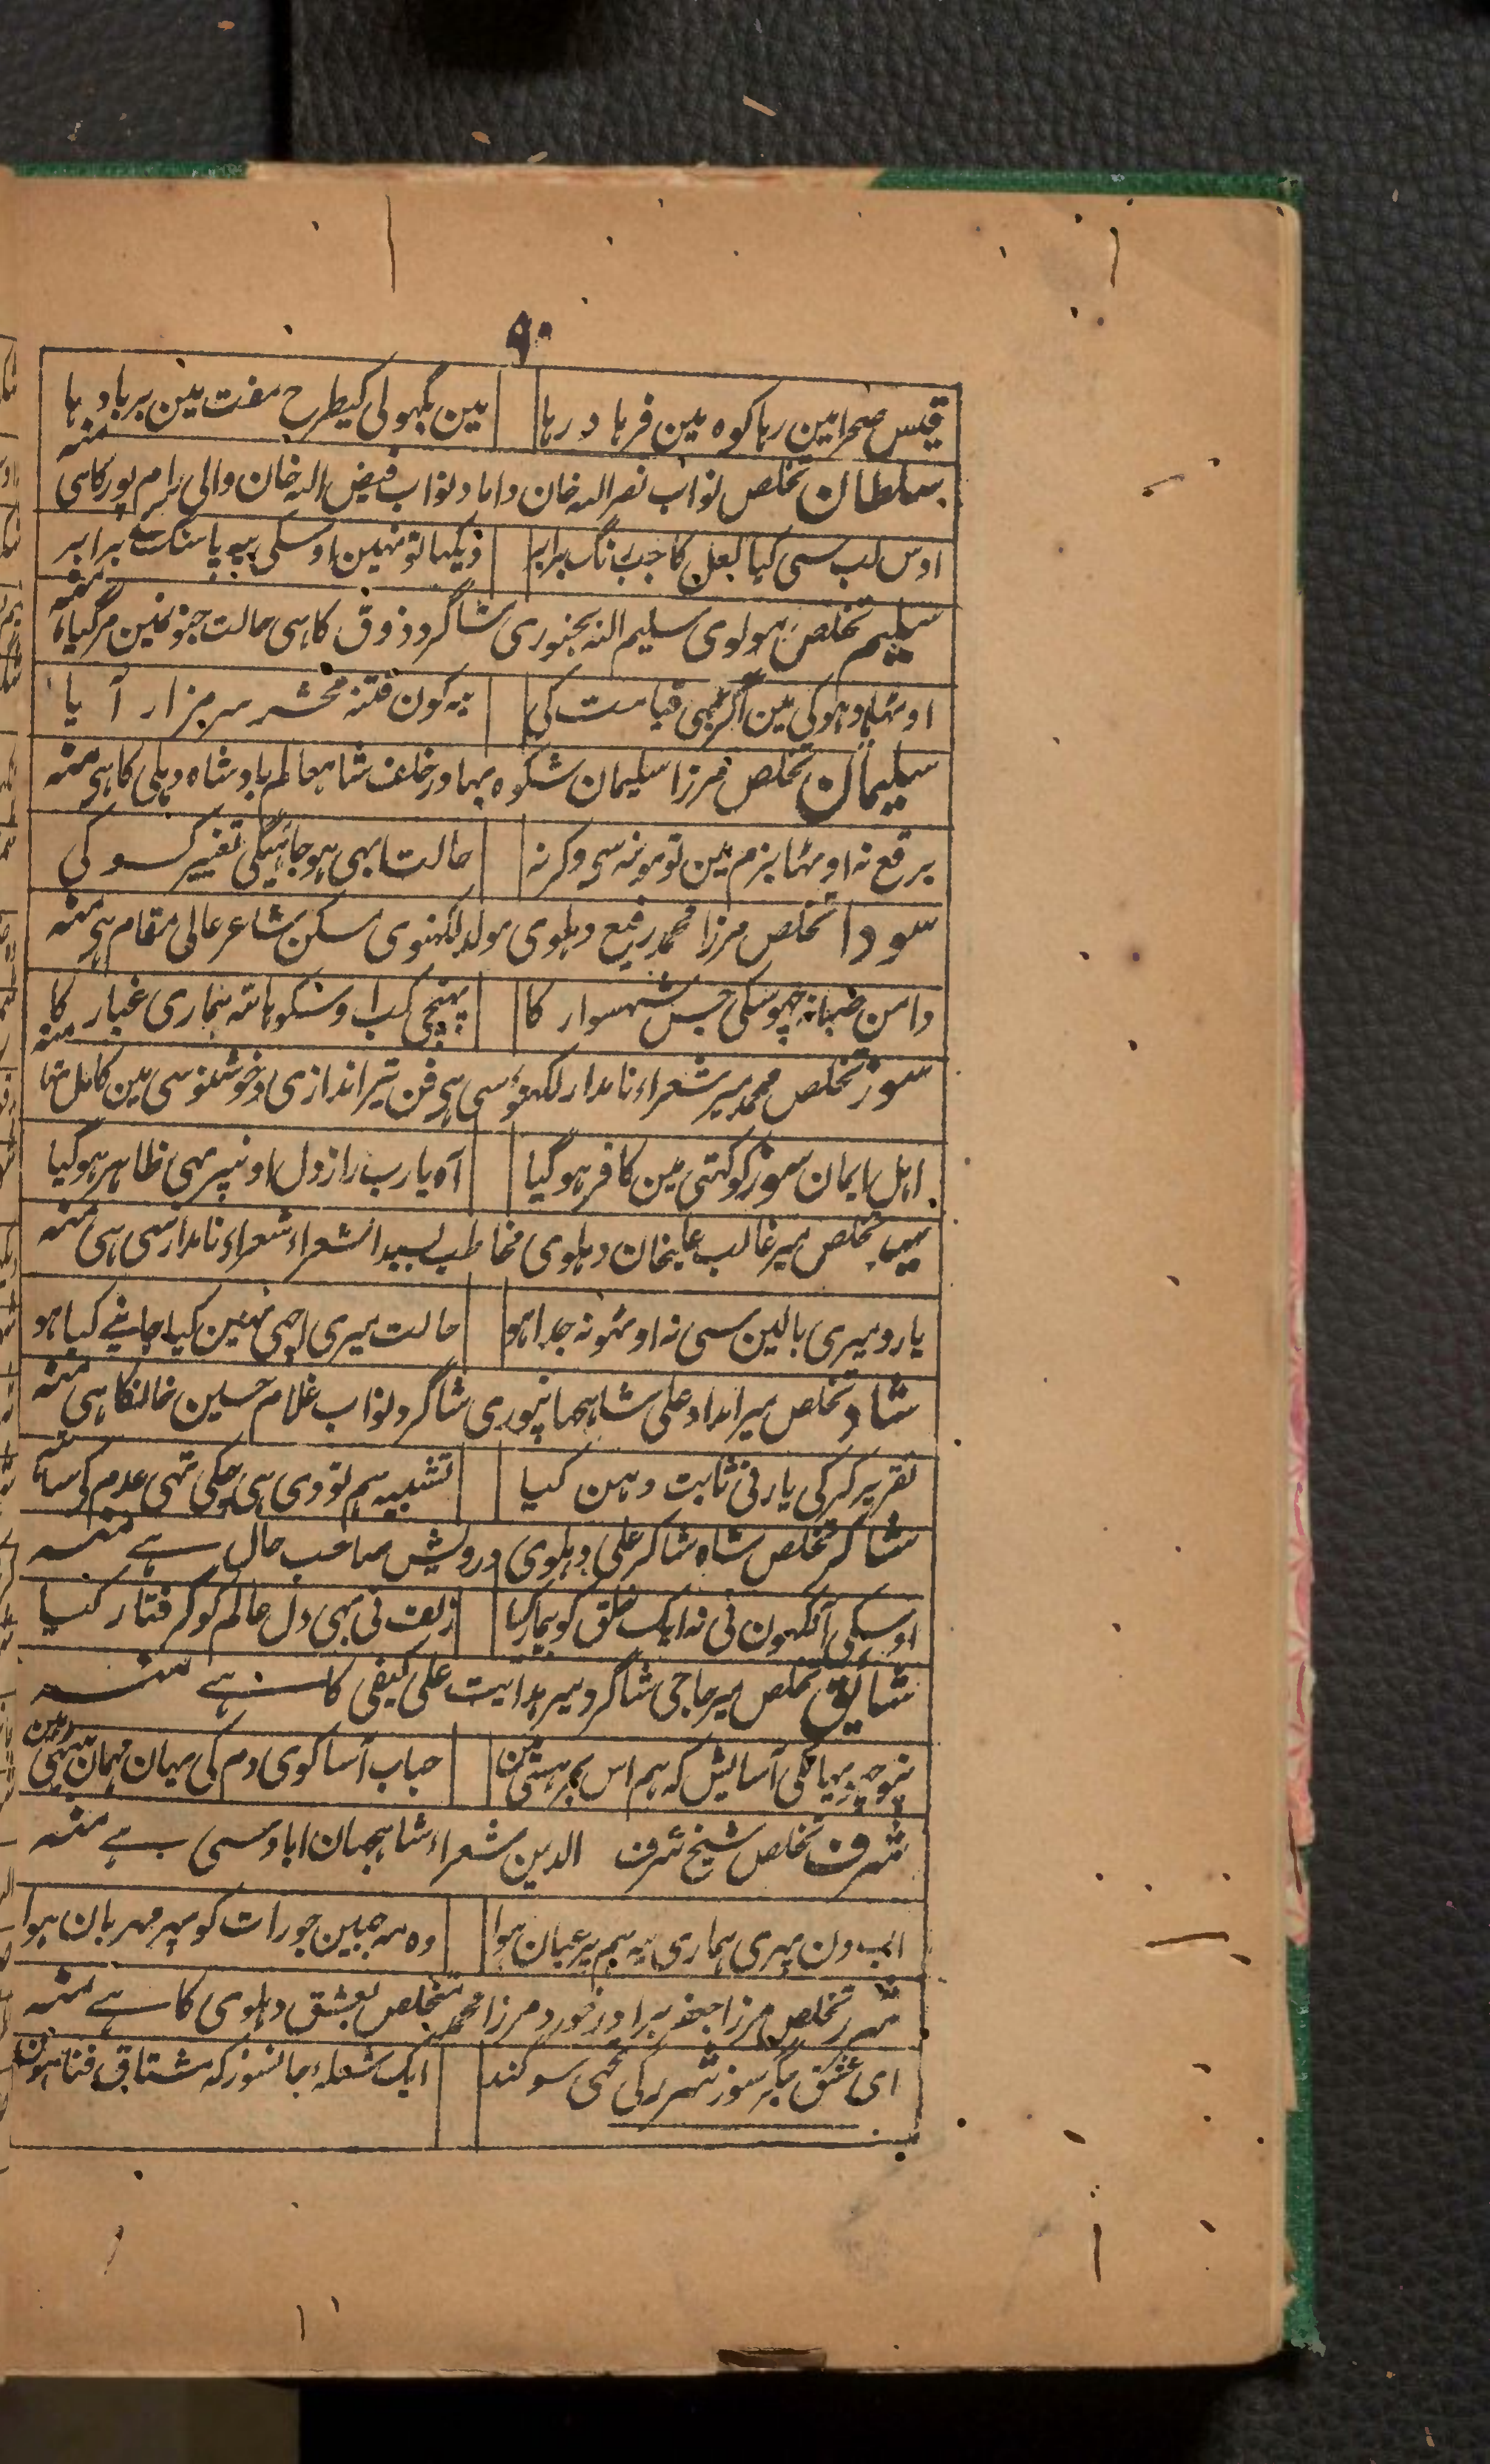 ۹۰
قیس صحرا مین رہا کوہ مین فرہاد رہا مین بگہولی کیطرح مفت مین برباد رہا
سلطان تخلص نواب نصر اللہ خان داماد نواب فیض اللہ خان والی رام پور کاہی منہ
اوس لب سی کیا لعل کا جب رنگ برابر دیکہا تو نہین اوسکی یہ پاسنگ کے برابر
سلیم تخلص مولوی سلیم اللہ بجنوری شاگرد ذوق کاہی حالت جنونمین مرگیا منہ
اوٹہا دہوکی مین اگر قیامت کی یہ کون فتنۂ محشر سر مزار آیا
سلیمان تخلص مرزا سلیمان شکوہ بہادر خلف شاہعالم بادشاہ دہلی کاہی منہ
برقع نہ اوٹہا بزم مین تو مونہ سی وگرنہ حالت ابہی ہوجائیگی تغییر کسو کی
سودا تخلص مرزا محمد رفیع دہلوی مولد لکہنوی مسکن شاعر عالی مقام ہی منہ
دامن صبا نہ چہوسکی جس شہسوار کا پہنچی کب اوسکو ہاتہ ہماری غبار کا
سوز تخلص محمد میر شعراء نامدار لکہنؤ سی ہی فن تیر اندازی و خوشنویسی مین کامل تہا منہ
اہل ایمان سوز کو کہتی مین کافر ہوگیا آہ یارب راز دل اونپر بہی ظاہر ہوگیا
سید تخلص میر غالب علیخان دہلوی مخاطب بسید الشعراء شعراء نامدار سی ہی منہ
یارو میری بالین سی نہ اوٹہو نہ جدا ہو حالت میری اچہی نہین کیا جانئے کیا ہو
شاد تخلص میر امداد علی شاہجہانپوری شاگرد نواب غلام حسین خانکا ہی منہ
تقریر کر کی یار نی ثابت دہن کیا تشبیہ ہم تو دی ہی چکی تہی عدم کی ساتہ
شاکر تخلص شاہ شاکر علی دہلوی درویش صاحب حال ہے منہ
اوسکی آنکہون نی نہ ایک خلق کو بیمار کیا زلف نی بہی دل عالم کو گرفتار کیا
شایق تخلص میر حاجی شاگرد میر ہدایت علی کیفی کا ہے منہ
نپوچہہ یہانکی آسایش کہ ہم اس بحر ہستی مین حباب آسا کوی دم کی یہان مہمان بیٹہی ہین
شرف تخلص شیخ شرف الدین شعراء شاہجہان اباد سی ہے منہ
اب دن پہری ہماری یہ ہم پر عیان ہوا وہ مہ جبین جو رات کو پہر مہربان ہوا
شرر تخلص مرزا جعفر برادر خورد مرزا محمد متخلص بعشق دہلوی کا ہے منہ
ای عشق جگر سوز شرر کی تجہی سوگند ایک شعلہء جانسوز کہ مشتاق فنا ہون